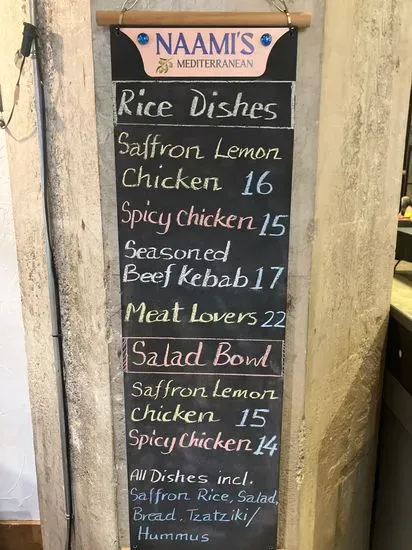 NAAMI'S
MEDITERRANEAN
Rice Dishes
Saffron Lemon
Chicken 16
Spicy Chicken 15
Seasoned
Beef Kebab 17
Meat Lovers 22
Salad Bowl
Saffron Lemon
chicken 15
Spicy Chicken 14
All Dishes incl.
Saffron Rice, Salad,
Bread, Tzatziki/
Hummus